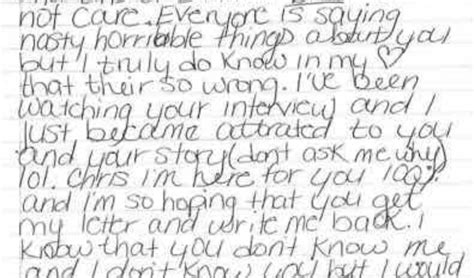 not care. Everyone is saying
nasty horrible things about you
but I truly do know in my ♡
that their so wrong. I've been
watching your interview and I
just became attrated to you
and your story (dont ask me why)
lol. Chris im here for you 100%
and I'm so hoping that you get
my letter and write me back. I
know that you dont know me
and I don't know you but I would